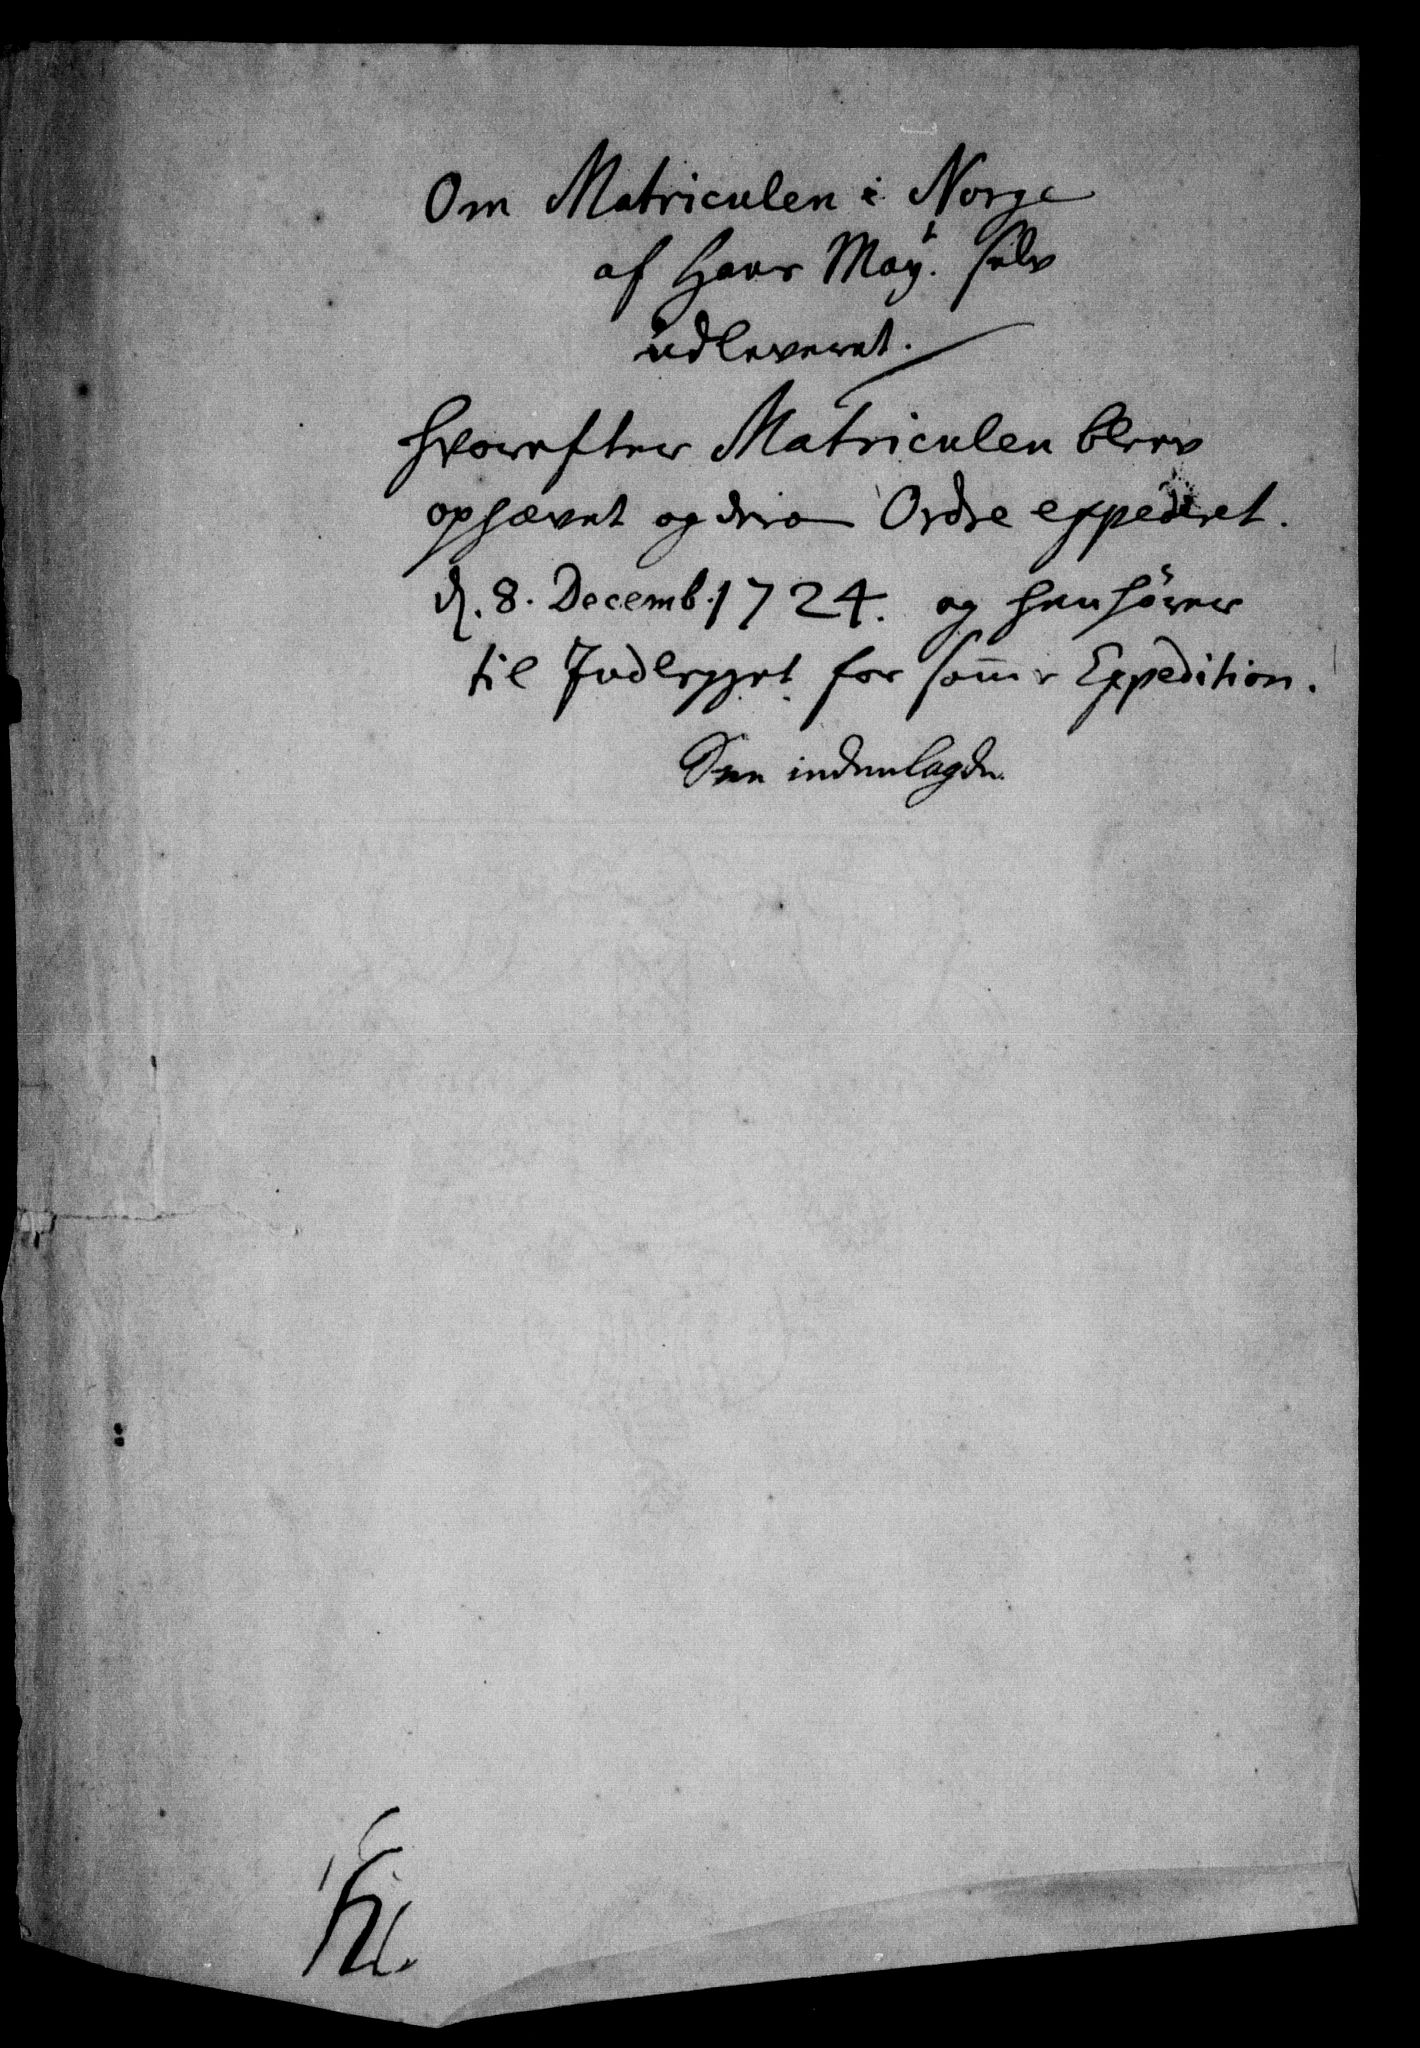 Om Matriculen i Norge
af Hans May.t selv
udleveret.
hvorefter Matriculen blev
ophævet og derom Ordre expederet.
d. 8. Decemb. 1724. og henhører
til Indlegget for samme Expedition.
See indenlagde.